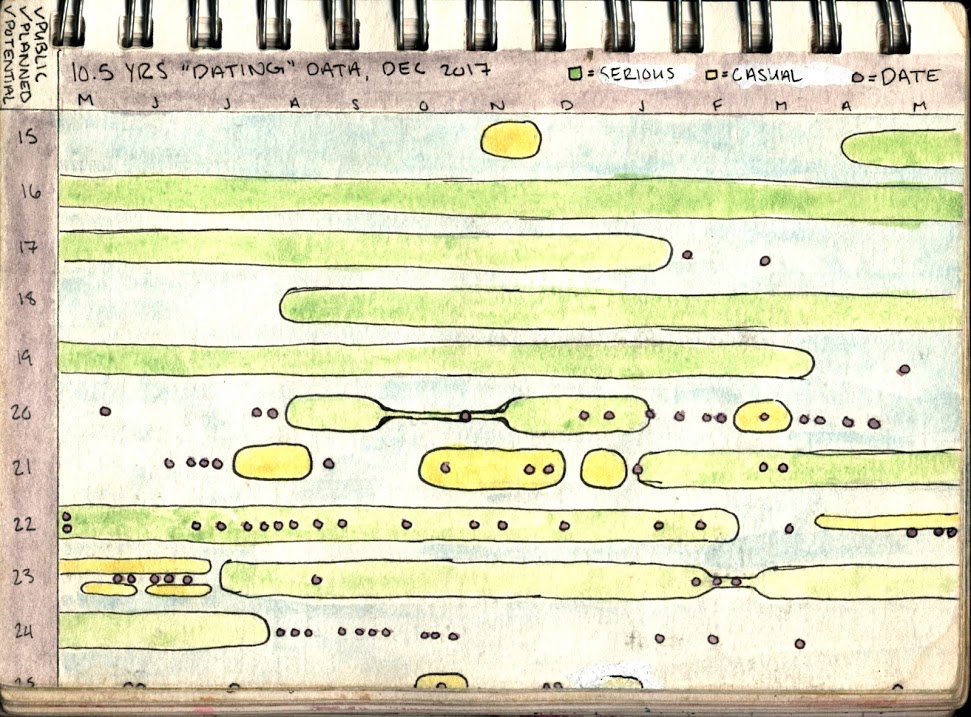 √PUBLIC
√PLANNED
√POTENTIAL
10.5 YRS "DATING" DATA, DEC 2017
= SERIOUS
= CASUAL
= DATE
M J J A S O N D J F M A M
15
16
17
18
19
20
21
22
23
24
25